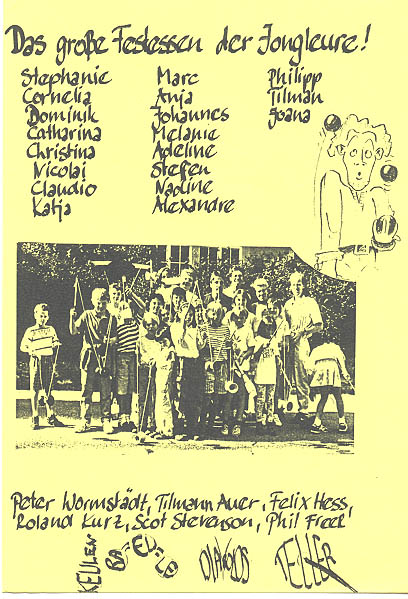 Das große Festessen der Jongleure!
Stephanie Marc Philipp
Cornelia Anja Tilman
Dominik Johannes Joana
Catharina Melanie
Christina Adeline
Nicolai Steffen
Claudio Nadine
Katja Alexandre
Peter Wormstädt, Tilmann Auer, Felix Hess,
Roland Kurz, Scot Stevenson, Phil Freel
KEULEN BÄ-EL-LE DIAVOLOS TELLER